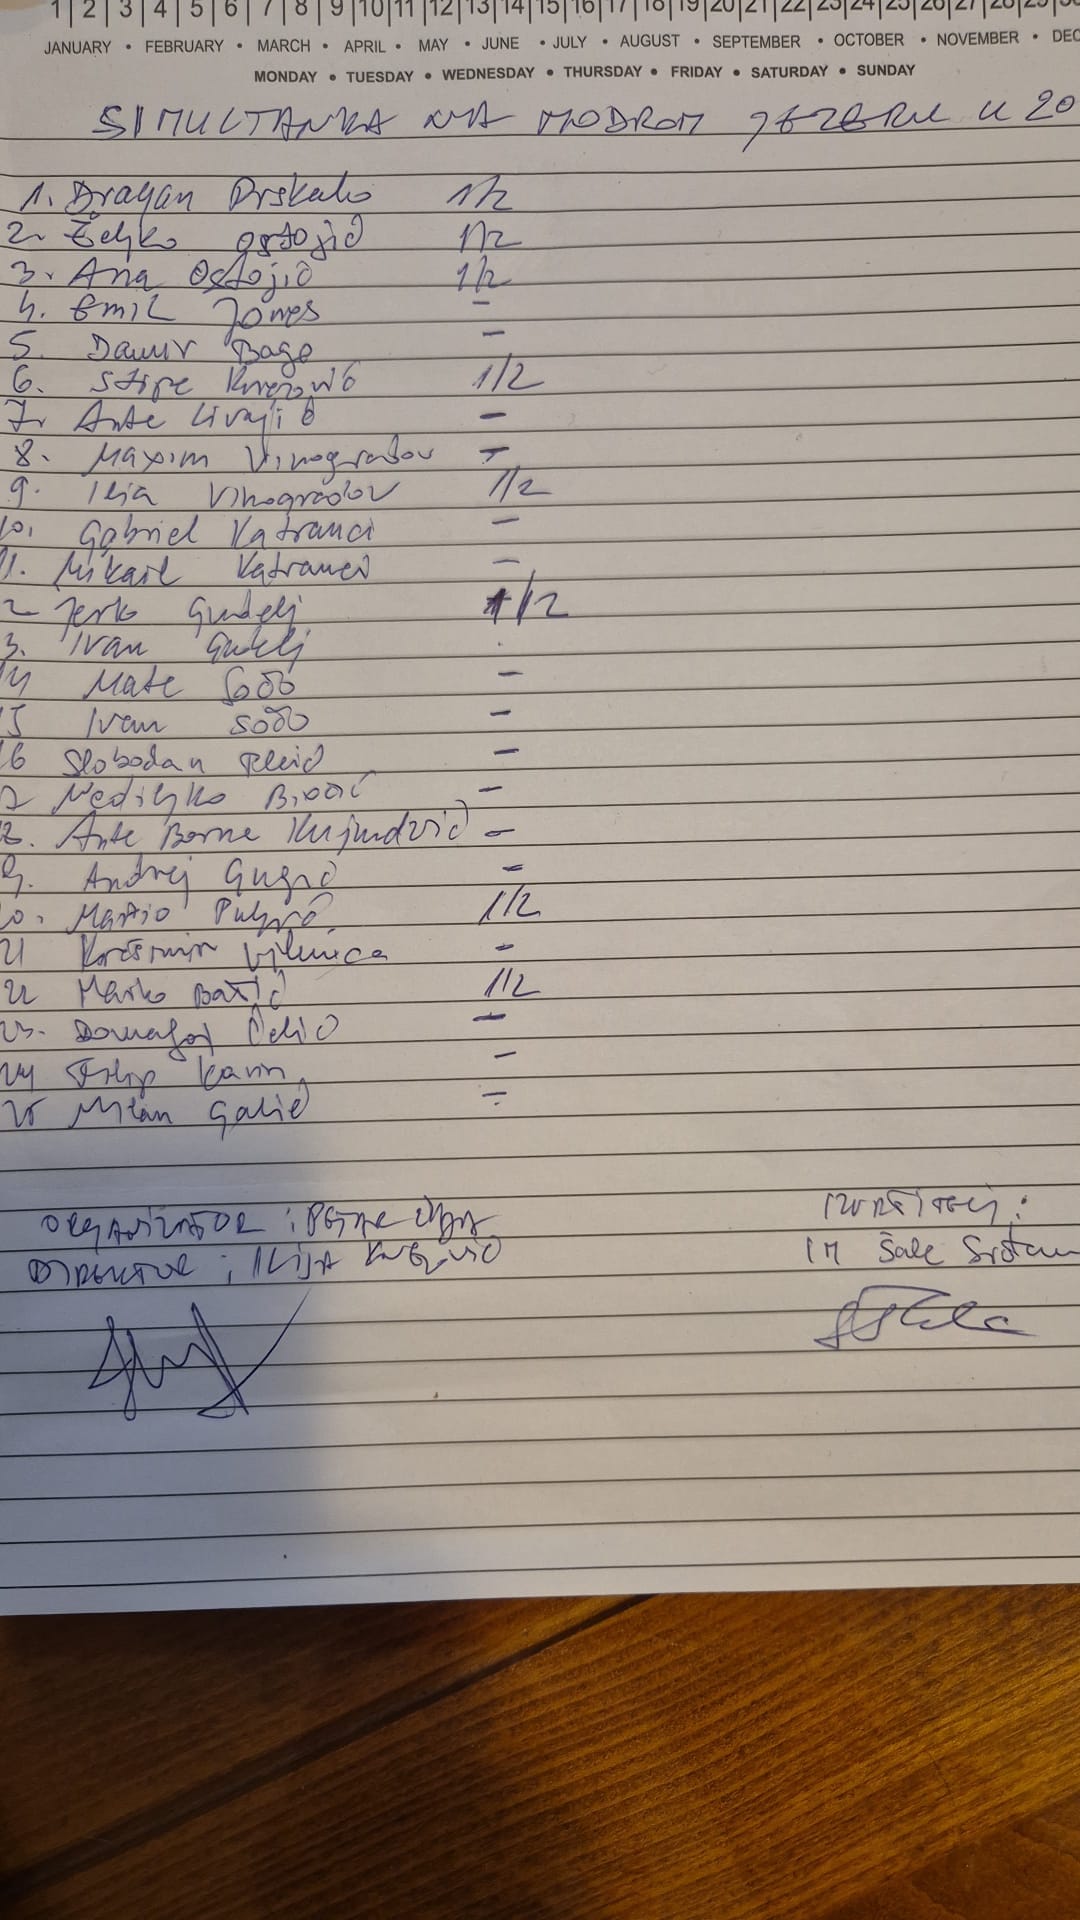 1|2|3|4|5|6|7|8|9|10|11|12|13|14|15|16|17|18|19|20|21|22|23|24|25|26|27|28|29|30
JANUARY • FEBRUARY • MARCH • APRIL • MAY • JUNE • JULY • AUGUST • SEPTEMBER • OCTOBER • NOVEMBER • DEC
MONDAY • TUESDAY • WEDNESDAY • THURSDAY • FRIDAY • SATURDAY • SUNDAY
SIMULTANKA NA MODROM JEZERU U 20
1. Dragan Prskalo 1/2
2. Željko Ostojić 1/2
3. Ana Ostojić 1/2
4. Emil Jones -
5. Damir Bago -
6. Stipe Knezović 1/2
7. Ante Livajić -
8. Maxim Vinogradov -
9. Ilia Vinogradov 1/2
10. Gabriel Katranci -
11. Mikail Katranci -
2 Jerko Gudelj 1/2
3. Ivan Gudelj
14 Mate -
15 Ivan -
16 Slobodan -
7 Nediljko -
8. Ante Borna Kujundžić -
9. Andrej -
20. Mario 1/2
21 Krešimir Vilenica -
22 Marko Batić 1/2
23. Domagoj Čelić -
24 Filip Kavin -
25 Milan Galić -
ORGANIZATOR : PETAR
DIREKTOR : ILIJA KNEZOVIĆ
IZVRŠITELJ :
IM Šale Srđan